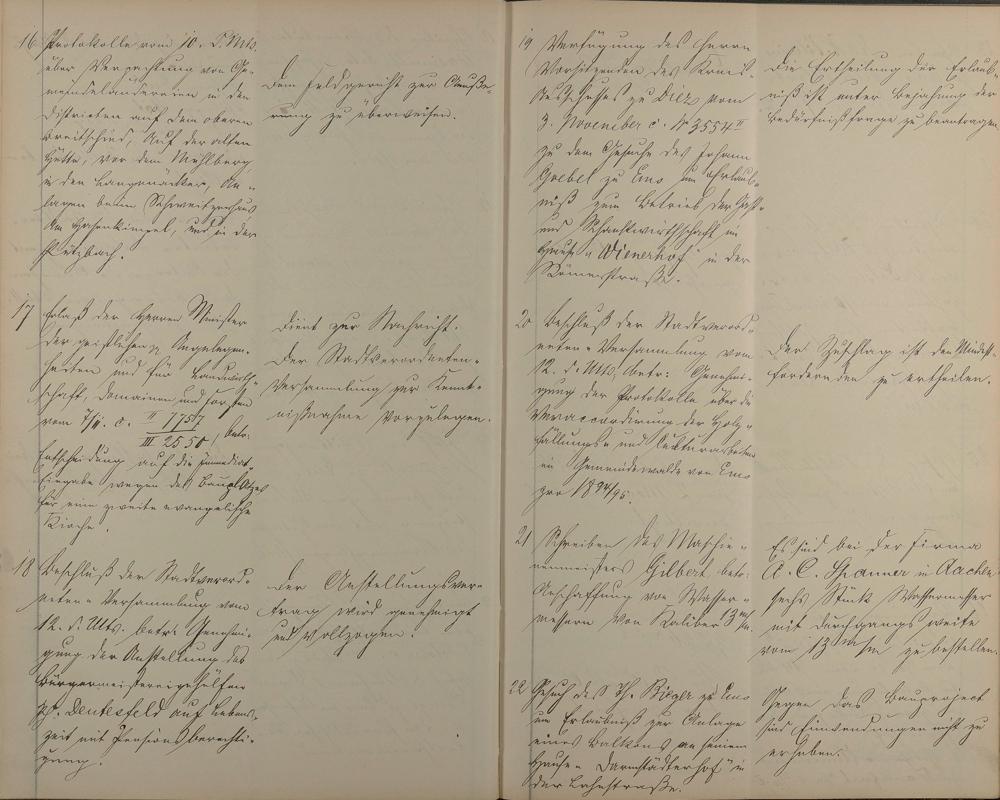 16 Protokolle vom 10. d. Mts.
über Verpachtung von Ge-
meindeländereien in den
Distrikten auf dem oberen
Breitschied, Auf der alten
Hütte, vor dem Mehlberg,
in den Langenäcker, An-
lagen beim Schweitzerhaus
Am Hasenkümpel, und in der
Pützbach.
Dem Feldgericht zur Äuße-
rung zu überweisen.
17 Erlaß der Herren Minister
der geistlichen pp Angelegen-
heiten und für Landwirth-
schaft, Domainen und Forsten
vom 7/11. c. II 1757
III 2550, betr.
Entscheidung auf die Immediat-
Eingabe wegen des Bauplatzes
für eine zweite evangelische
Kirche.
Dient zur Nachricht.
Der Stadtverordneten-
Versammlung zur Kennt-
nißnahme vorzulegen.
18 Beschluß der Stadtverord-
neten-Versammlung vom
12. d. Mts. betr. Genehmi-
gung der Anstellung des
Bürgermeistereigehülfen
Deutesfeld auf Lebens-
zeit mit Pensionsberechti-
gung.
Der Anstellungsver-
trag wird genehmigt
und vollzogen.
19 Verfügung des Herrn
Vorsitzenden des Kreis-
Ausschusses zu Diez vom
3. November c. No 3554 II
zu dem Gesuche des Johann
Goebel zu Ems um Erlaub-
niß zum Betrieb der Gast-
und Schankwirthschaft im
Hause "Wienerhof" in der
Römerstraße.
Die Ertheilung der Erlaub-
niß ist unter Bejahung der
Bedürfnißfrage zu beantragen.
20 Beschluß der Stadtverord-
neten-Versammlung vom
12. d. Mts, betr: Genehmi-
gung der Protokolle über die
Veraccordirung der Holz-
fällungs- und Culturarbeiten
im Gemeindewalde von Ems
pro 1894/95.
Der Zuschlag ist den Mindest-
fordernden zu ertheilen.
21 Schreiben des Maschi-
nenmeisters Gilbert, betr.
Anschaffung von Wasser-
messern von Kaliber 13 m/m.
Es sind bei der Firma
A. C. Spanner in Aachen
sechs Stück Wassermesser
mit Durchgangsweite
von 13 m/m zu bestellen.
22 Gesuch des Th. Rieger zu Ems
um Erlaubniß zur Anlage
eines Balkons an seinem
Hause "Darmstädterhof" in
der Lahnstraße.
Gegen das Bauproject
sind Einwendungen nicht zu
erheben.